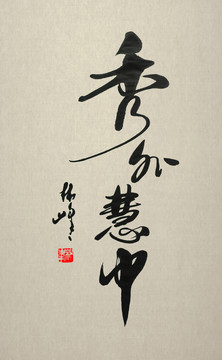 秀外慧中